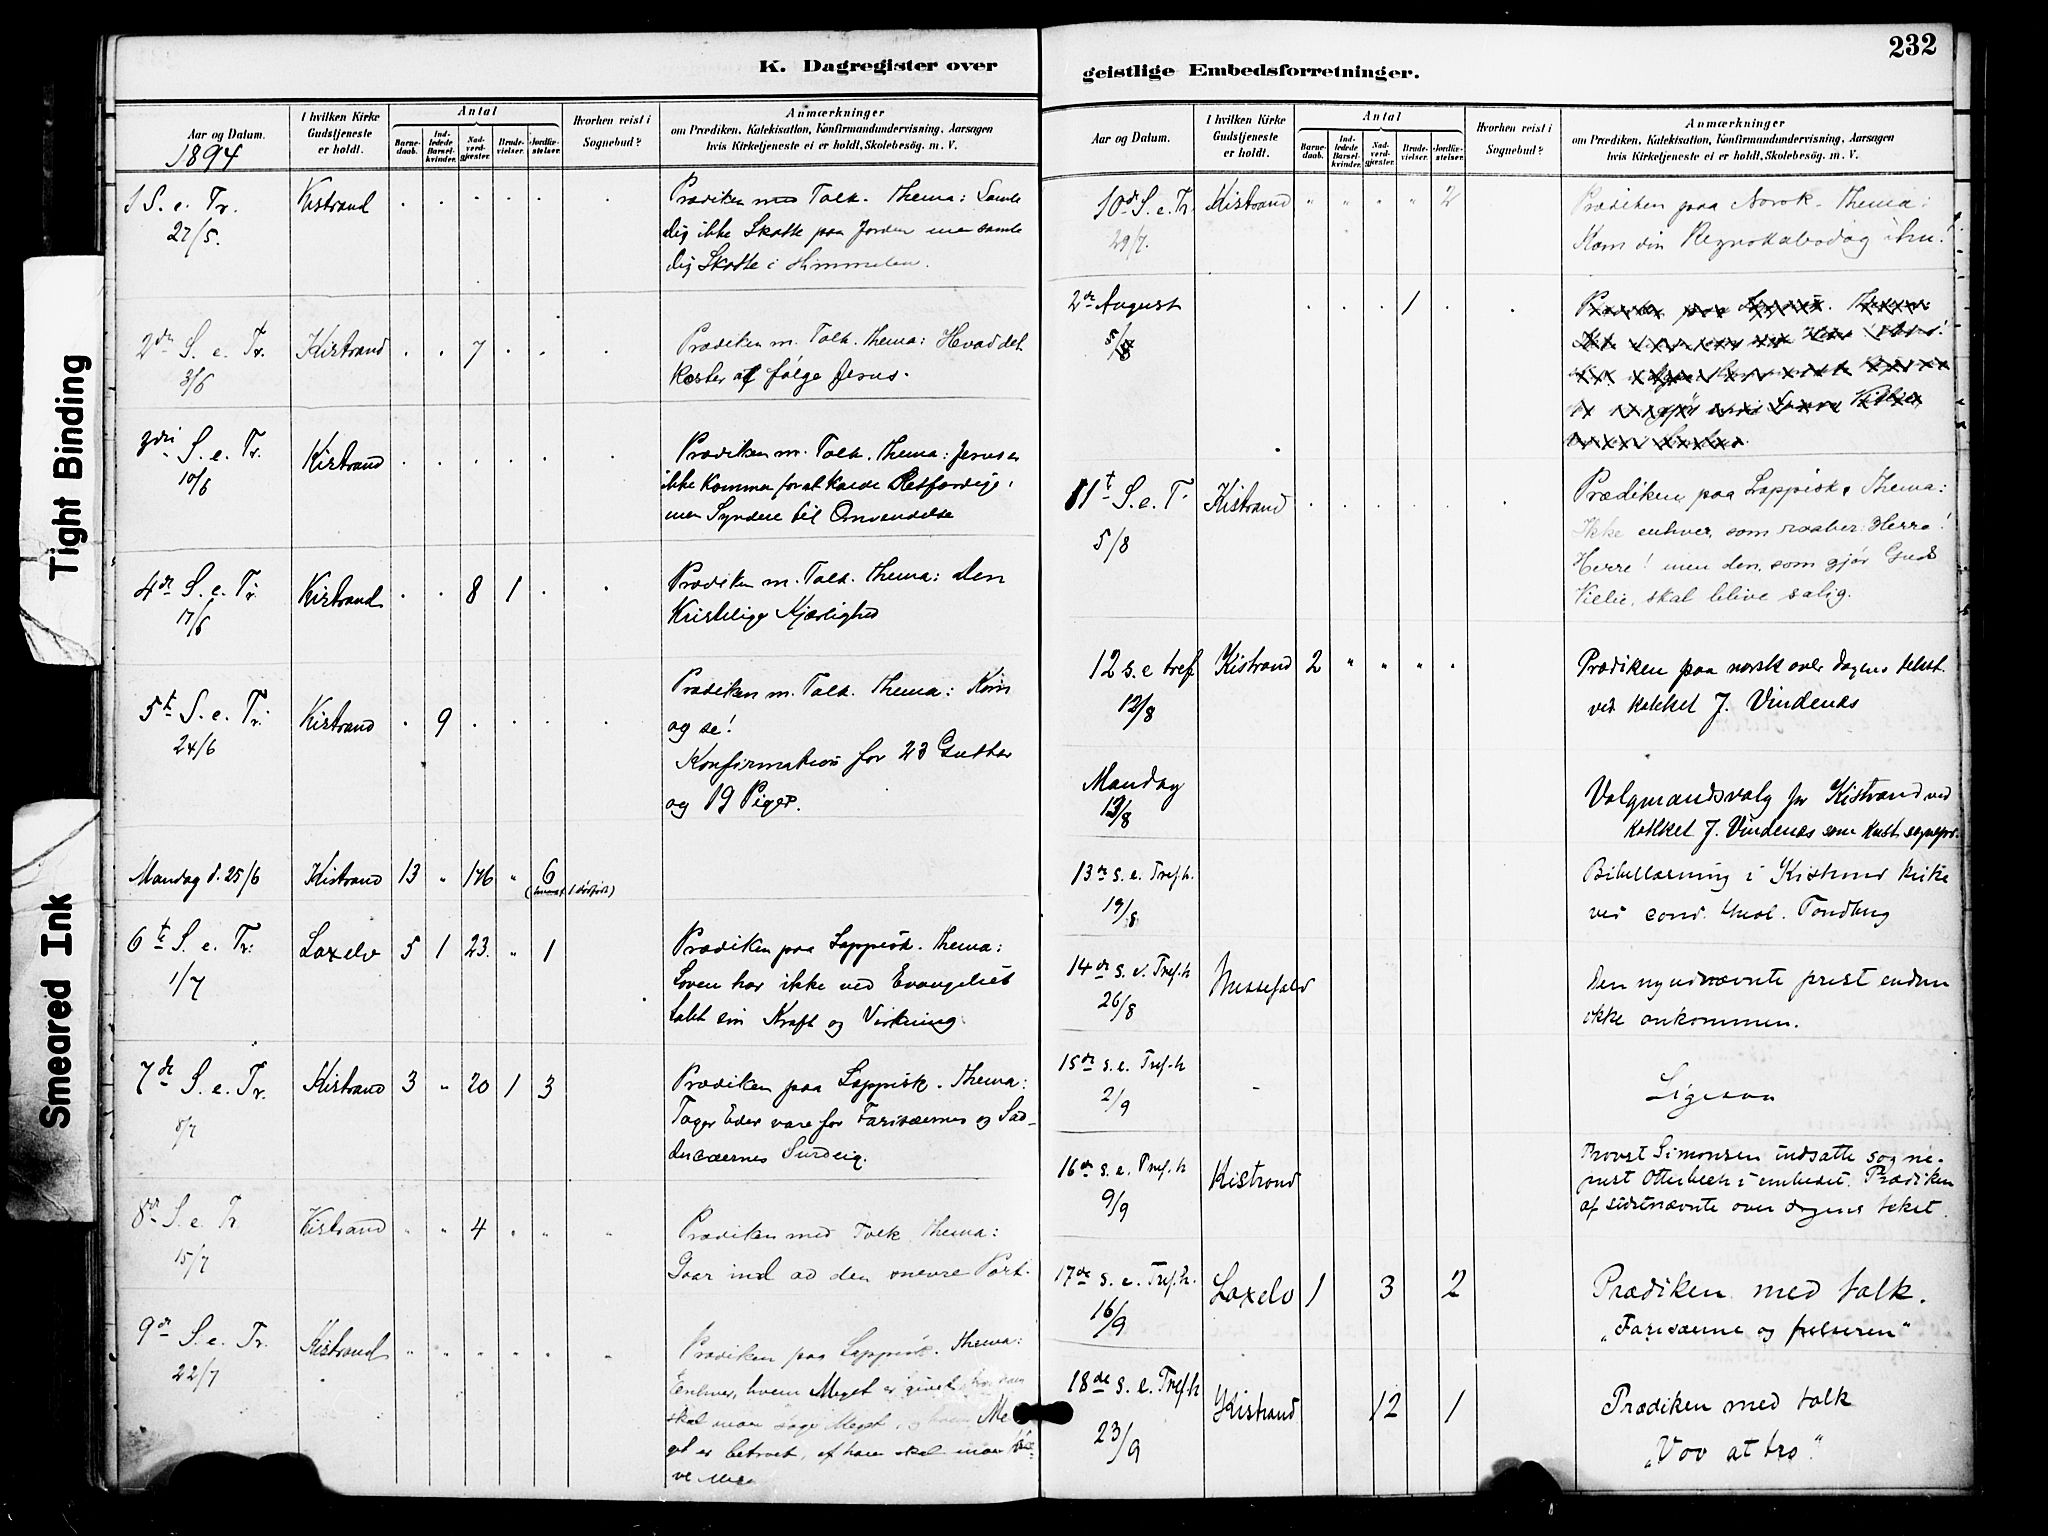 K. Dagregister over
Aar og Datum.
1894
I hvilken Kirke Gudstjeneste er holdt.
Antal
Barnedaab.
Indledede Barselkvinder.
Nadverdgjester.
Brudevielser.
Jordfæstelser.
Hvorhen reist i Sognebud?
Anmærkninger
om Prædiken, Katekisation, Konfirmandundervisning, Aarsagen
hvis Kirketjeneste ei er holdt, Skolebesøg. m. V.
1 S. e. Tr. Kistrand Prædiken med Tolk. Thema: Samle
27/5. dig ikke Skatte paa Jorden men samle
dig Skatte i Himmelen.
2den S. e. Tr. Kistrand 7 Prædiken m. Tolk. Thema: Hvad det
3/6 koster at følge Jesus.
3die S. e. Tr. Kistrand Prædiken m. Tolk. Thema: Jesus er
10/6 ikke kommen for at kalde Retfærdige,
men Syndere til Omvendelse
4de S. e. Tr. Kistrand 8 1 Prædiken m. Tolk. Thema: Den
17/6 Kristelige Kjærlighed
5te S. e. Tr. Kistrand 9 Prædiken m. Tolk. Thema: Kom
24/6 og se!
Konfirmation for 23 Gutter
og 19 Piger.
Mandag d. 25/6 Kistrand 13 " 176 " 6
6te S. e. Tr. Laxelv 5 1 23. " 1 Prædiken paa Lappisk. Thema:
1/7 Loven har ikke ved Evangeliet
tabt sin Kraft og Virkning.
7de S. e. Tr. Kistrand 3 " 20 1 3 Prædiken paa Lappisk. Thema:
8/7 Tager Eder vare for Farisæernes og Sad-
ducæernes Surdeig.
8de S. e. Tr Kistrand " " 4 " " " Prædiken med Tolk Thema:
15/7 Gaar ind ad den snevre Port.
9de S. e. Tr. Kistrand " " " " " " Prædiken paa Lappisk. Thema:
22/7 Enhver, hvem Meget er givet,
skal man søge Meget, hvem Me-
get er betroet, af ham skal man
geistlige Embedsforretninger.
232
Aar og Datum.
I hvilken Kirke Gudstjeneste er holdt.
Antal
Barnedaab.
Indledede Barselkvinder.
Nadverdgjester.
Brudevielser.
Jordfæstelser.
Hvorhen reist i Sognebud?
Anmærkninger
om Prædiken, Katekisation, Konfirmandundervisning, Aarsagen
hvis Kirketjeneste ei er holdt, Skolebesøg. m. V.
10de S. e. Tr. Kistrand " " " " 2 Prædiken paa Norsk. Thema:
29/7. Kom din Regnskabsdag ihu!
2den August 1
11te S. e. T. Kistrand Prædiken paa Lappisk. Thema:
5/8 Ikke enhver, som raaber: Herre!
Herre! men den, som gjør Guds
Villie, skal blive salig.
12 s. e tref Kistrand 2 " " " " Prædiken paa norsk over dagens tekst
12/8 ved kateket J. Vindenæs
Mandag Valgmandsvalg for Kistrand ved
13/8 kateket J. Vindenæs som konst. sognepr.
13de s. e. Tref.h. Bibellæsning i Kistrand kirke
19/8 ved cand. theol. Tandberg
14de s. e. Tref.h Messefald Den nyudnævnte prest endnu
26/8 ikke ankommen.
15de s. e. Tref.h - Ligesaa
2/9
16de s. e. Tref.h Kistrand Provst Simonsen indsatte sogne-
9/9 prest Otterbech i embedet. Prædiken
af sidstnævnte over dagens tekst.
17de s. e. Tref.h. Laxelv 1 3 2 Prædiken med tolk.
16/9 „Farisæerne og frelseren"
18de s. e. Tref.h Kistrand 12 1 Prædiken med tolk
23/9 „Vov at tro".
Tight Binding
Smeared Ink